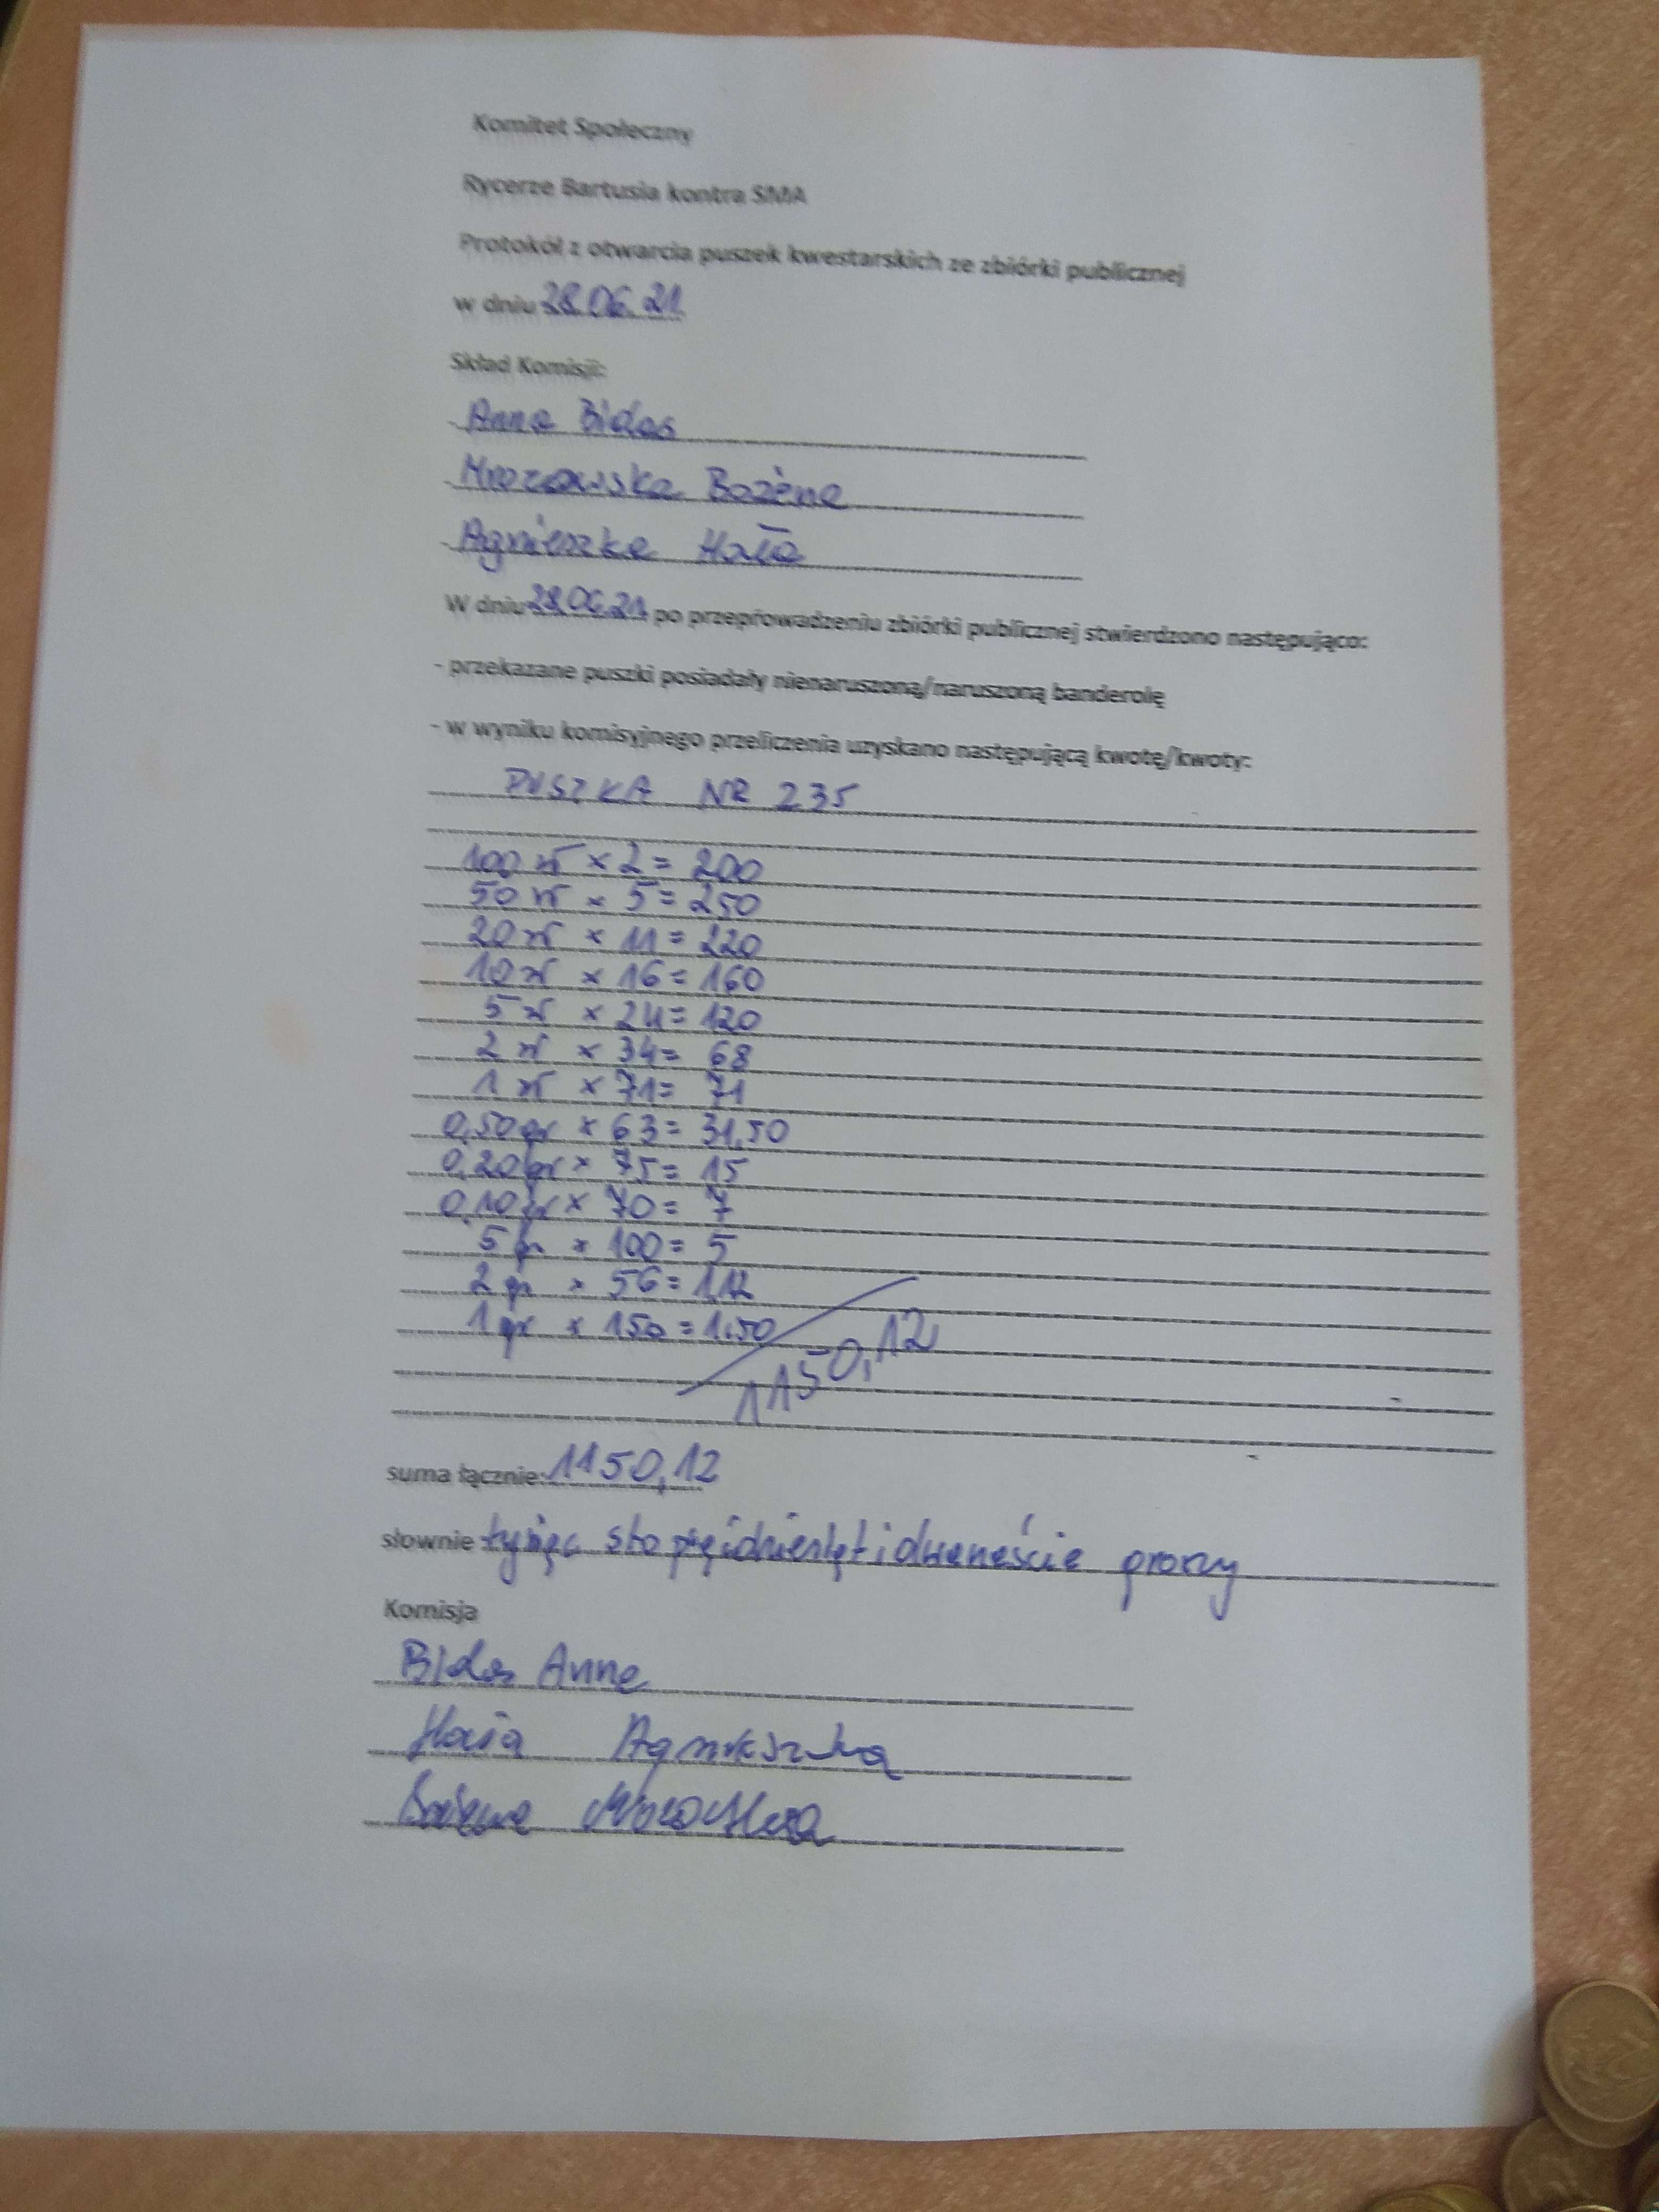 Komitet Społeczny
Rycerze Bartusia kontra SMA
Protokół z otwarcia puszek kwestarskich ze zbiórki publicznej
w dniu 28.06.21
Skład Komisji:
Anna Bidas
Mrozowska Bożena
Agnieszka
W dniu 28.06.21 po przeprowadzeniu zbiórki publicznej stwierdzono następująco:
- przekazane puszki posiadały nienaruszoną/naruszoną banderolę
- w wyniku komisyjnego przeliczenia uzyskano następującą kwotę/kwoty:
PUSZKA NR 235
100 zł × 2 = 200
50 zł × 5 = 250
20 zł × 11 = 220
10 zł × 16 = 160
5 zł × 24 = 120
2 zł × 34 = 68
1 zł × 71 = 71
0,50 gr × 63 = 31,50
0,20 gr × 75 = 15
0,10 gr × 70 = 7
5 gr × 100 = 5
2 gr × 56 = 1,12
1 gr × 150 = 1.50
1150,12
suma łącznie: 1150,12
słownie tysiąc sto pięćdziesiąt i dwanaście groszy
Komisja
Bidas Anna
Agnieszka
Bożena Mrozowska